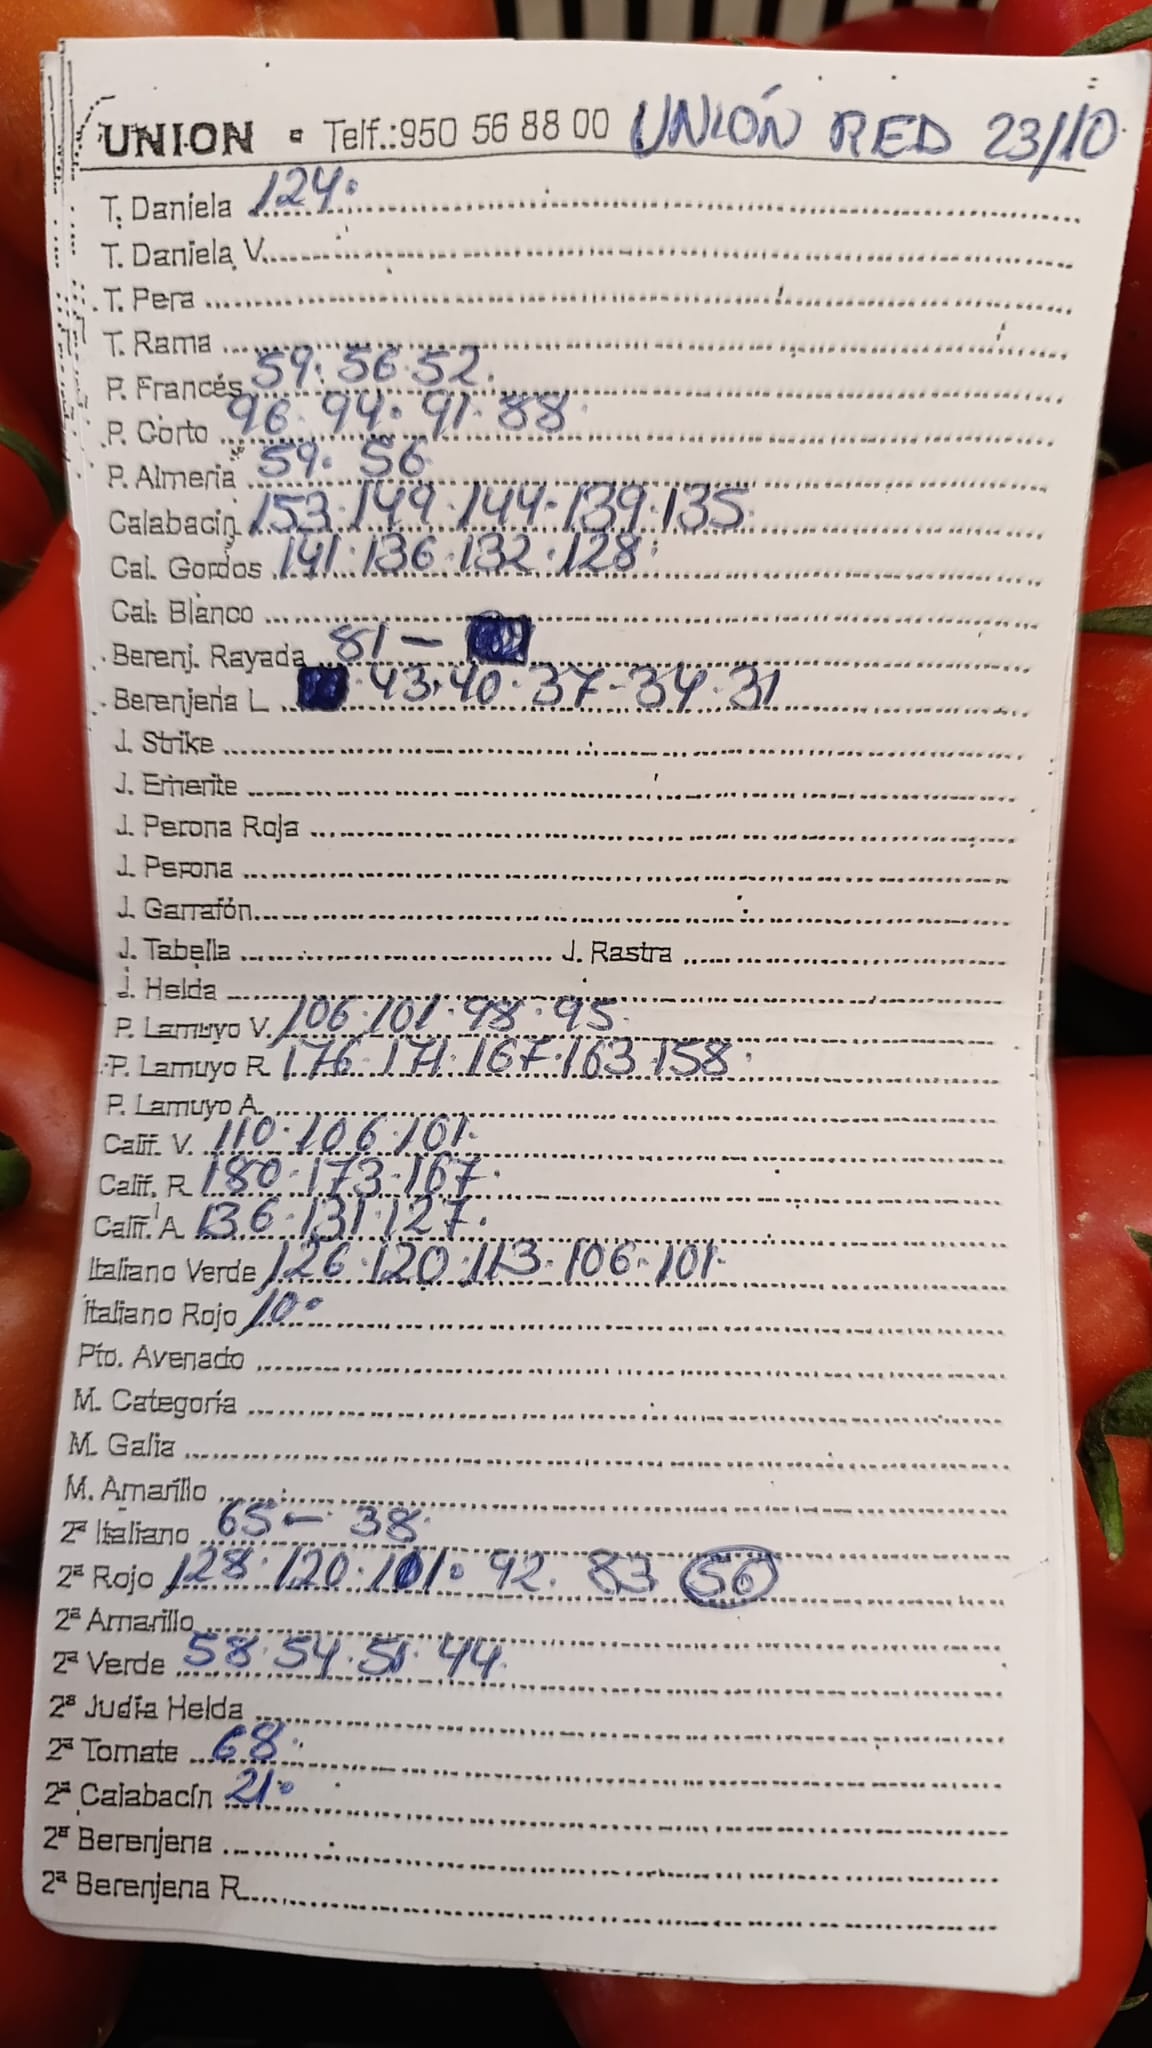 UNION ▪ Telf.:950 56 88 00 UNIÓN RED 23/10
T. Daniela 124.
T. Daniela V.
T. Pera
T. Rama
P. Francés 59. 56. 52.
P. Corto 96. 94. 91. 88.
P. Almeria 59. 56
Calabacín 153. 149. 144. 139. 135.
Cal. Gordos 141. 136. 132. 128.
Cal. Blanco
Berenj. Rayada 81 —
Berenjena L. . 43. 40. 37 - 34. 31
J. Strike
J. Emerite
J. Perona Roja
J. Perona
J. Garrafón
J. Tabella J. Rastra
J. Helda
P. Lamuyo V. 106. 101. 98. 95.
P. Lamuyo R. 176. 171. 167. 163. 158.
P. Lamuyo A.
Calif. V. 110. 106. 101.
Calif. R. 180. 173. 167.
Calif. A. 136. 131. 127.
Italiano Verde 126. 120. 113. 106. 101.
Italiano Rojo 10.
Pto. Avenado
M. Categoría
M. Galia
M. Amarillo
2ª Italiano 65 — 38.
2ª Rojo 128. 120. 101. 92. 83 56
2ª Amarillo
2ª Verde 58. 54. 51. 44.
2ª Judía Helda
2ª Tomate 68.
2ª Calabacín 21.
2ª Berenjena
2ª Berenjena R.